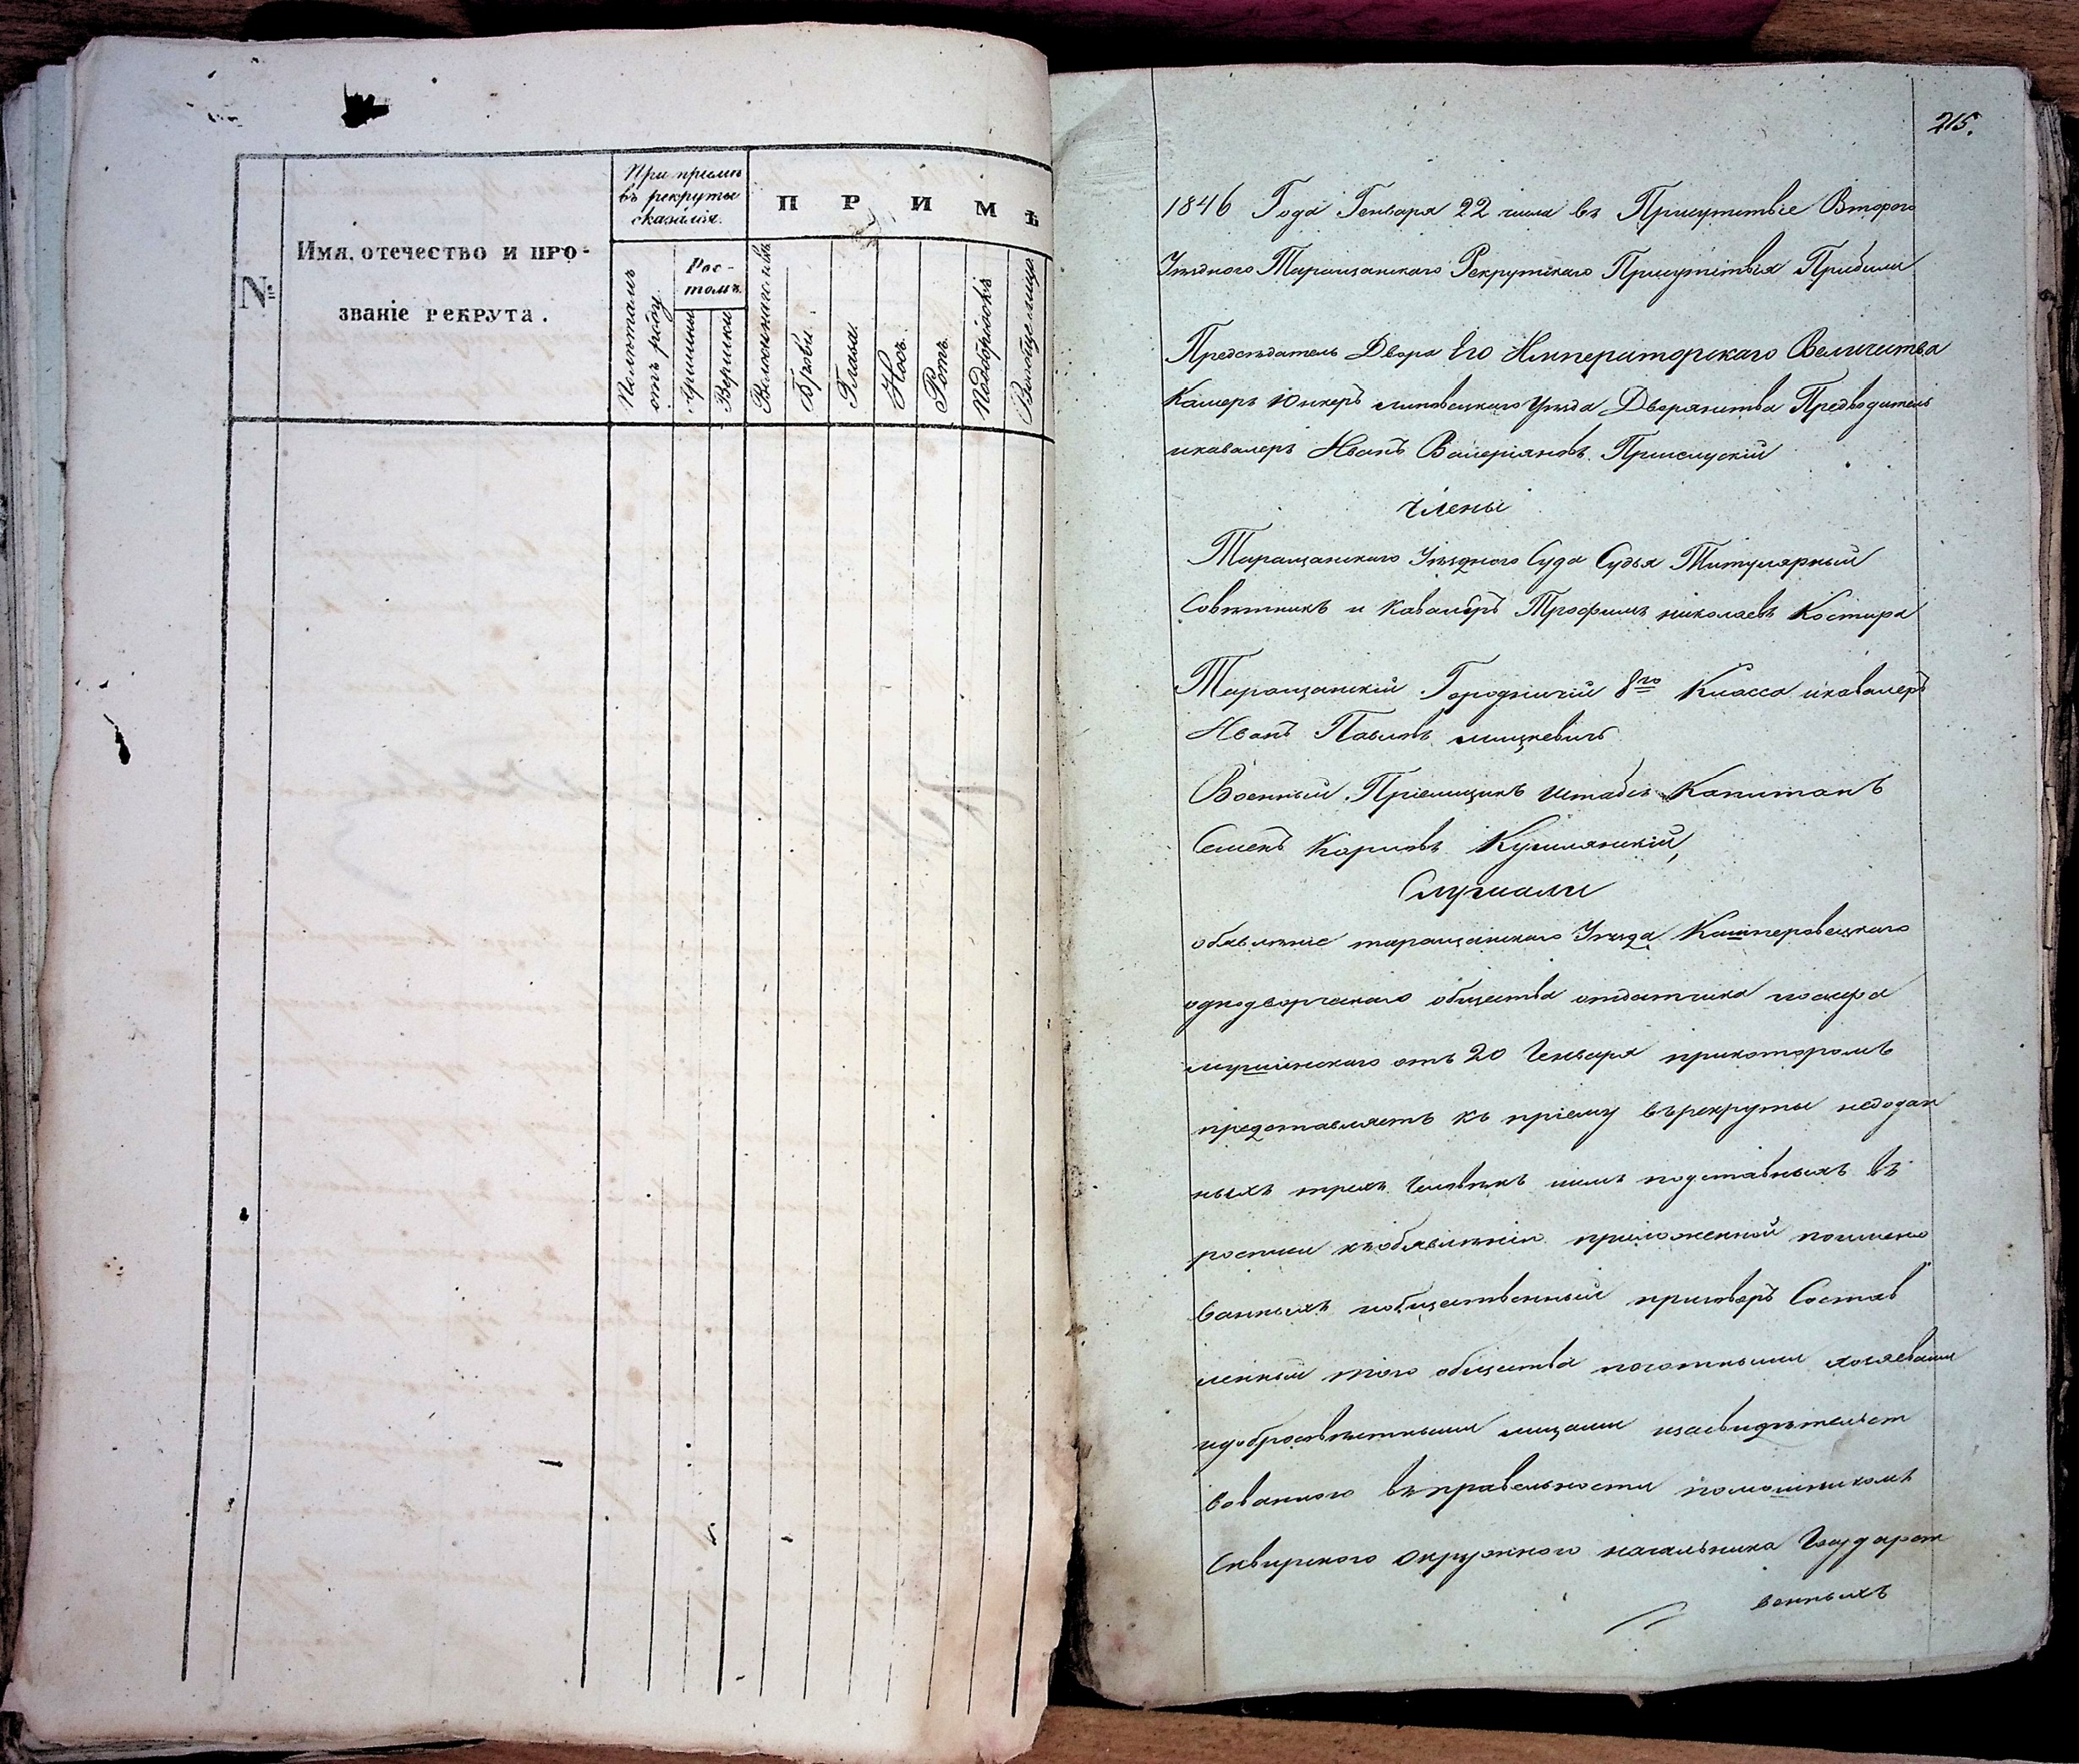 №
Имя, отечество и про-
званіе рекрута.
При пріемѣ
въ рекруты
сказался.
П Р И М Ѣ
Рос-
томъ.
Полѣтамъ
отъ роду.
Аршины
Вершки
Брови.
Глаза.
Носъ.
Ротъ.
Подбородокъ
Вообще лицо
215.
1846 Года Генваря 22 числа въ Присутствіе Втораго
Уѣзднаго Таращанскаго Рекрутскаго Присутствія Прибыли
Предсѣдатель Двора Его Императорскаго Величества
Камеръ Юнкеръ Липовецкаго Уѣзда Дворянства Предводитель
икавалеръ Иванъ Валеріяновъ
Члены
Таращанскаго Уѣзднаго Суда Судья Титулярный
Совѣтникъ и Кавалеръ Трофимъ николаевъ Костыра
Таращанскій Городничій 8го Класса икавалеръ
Иванъ Павловъ мицкевичъ
Военный Пріемщикъ Штабсъ Капитанъ
Семенъ Карповъ
Слушали
обявленіе таращанскаго Уѣзда Кашперовецкаго
однодворческаго общества отдатчика
отъ 20 Генваря прикоторомъ
представляетъ къ пріему върекруты недодан
ныхъ трехъ Человѣкъ подставныхъ въ
росписи къобявленію приложенной поимено
ванныхъ иобщественный приговоръ Состав
ленный того общества почотными хозяевами
идобросовѣстными лицами изасвидѣтельст
вованного въправельности помошникомъ
Сквирскаго Окружного начальника Государст
венныхъ